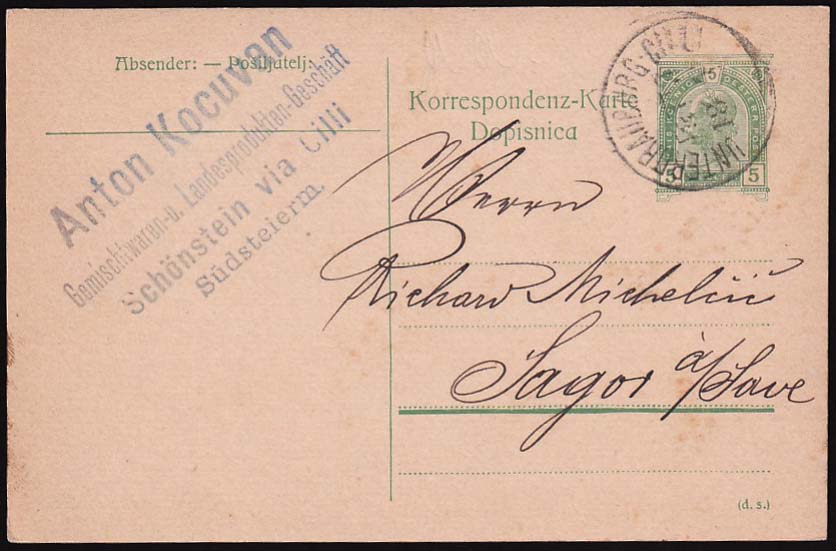 Absender: — Pošiljatelj:
Anton Kocuvan
Gemischtwaren- u. Landesprodukten-Geschäft
Schönstein via Cilli
Südsteierm.
Korrespondenz-Karte
Dopisnica
UNTERDRAUBURG-CILLI
5
5 5
Herrn
Richard Michelčič
Sagor a/Save
(d. s.)